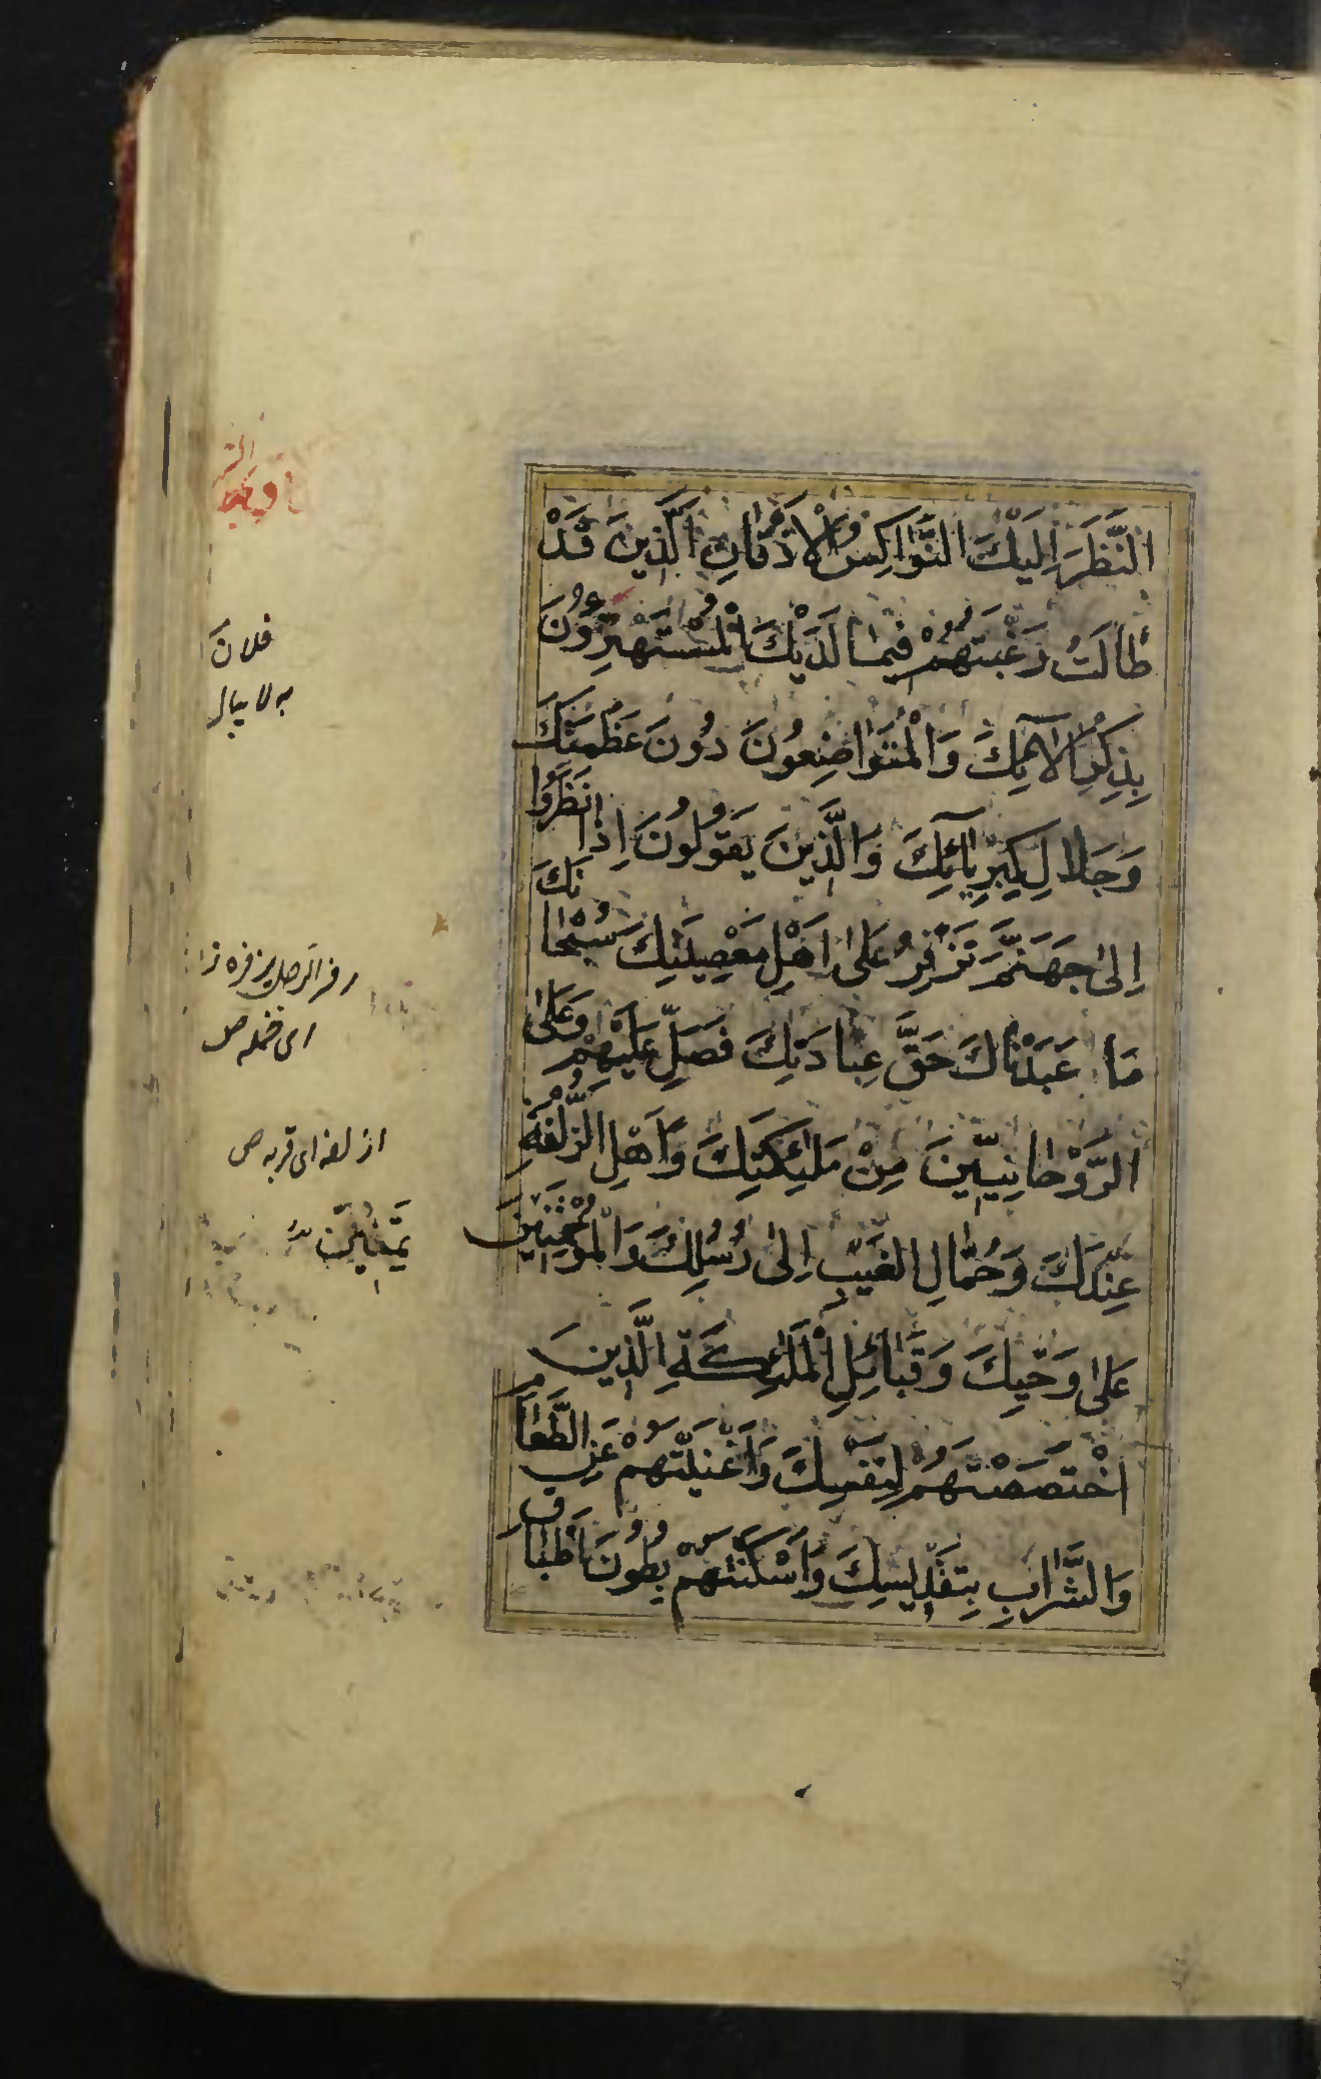 النَّظَرَ اِلَيْكَ النَّوَاكِسُ الْاَذْقَانِ الَّذِينَ قَدْ
طَالَتْ رَغْبَتُهُمْ فِيمَا لَدَيْكَ الْمُسْتَهْتِرُونَ
بِذِكْرِ اٰلَآئِكَ وَالْمُتَوَاضِعُونَ دُونَ عَظَمَتِكَ
وَجَلَالِ كِبْرِيَآئِكَ وَالَّذِينَ يَقُولُونَ اِذَا نَظَرُوا
اِلٰى جَهَنَّمَ تَزْفِرُ عَلٰى اَهْلِ مَعْصِيَتِكَ سُبْحَانَكَ
مَا عَبَدْنَاكَ حَقَّ عِبَادَتِكَ فَصَلِّ عَلَيْهِمْ وَعَلَى
الرَّوْحَانِيِّينَ مِنْ مَلٰئِكَتِكَ وَاَهْلِ الزُّلْفَةِ
عِنْدَكَ وَحُمَّالِ الْغَيْبِ اِلٰى رُسُلِكَ وَالْمُؤْتَمَنِينَ
عَلٰى وَحْيِكَ وَقَبَائِلِ الْمَلٰئِكَةِ الَّذِينَ
اخْتَصَصْتَهُمْ لِنَفْسِكَ وَاَغْنَيْتَهُمْ عَنِ الطَّعَامِ
وَالشَّرَابِ بِتَقْدِيسِكَ وَاَسْكَنْتَهُمْ بُطُونَ اَطْبَاقِ
فلان
ازلفه ای قربه ص